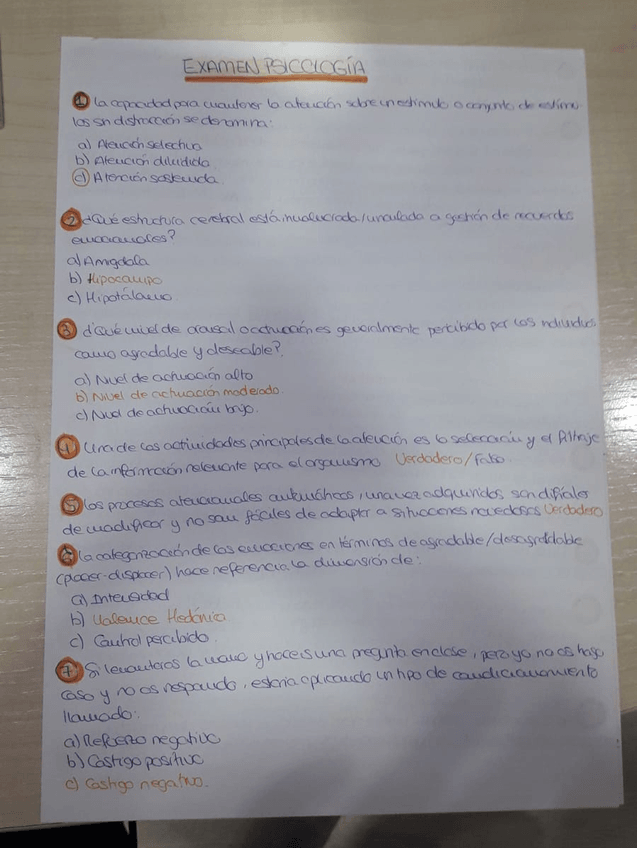 EXAMEN PSICOLOGÍA
1 La capacidad para mantener la atención sobre un estímulo o conjunto de estímu
los sin distracción se denomina:
a) Atención selectiva
b) Atención dividida
c) Atención sostenida
2 ¿Qué estructura cerebral está involucrada/vinculada a gestión de recuerdos
emocionales?
a) Amígdala
b) Hipocampo
c) Hipotálamo
3 ¿Qué nivel de arousal o activación es generalmente percibido por los individuos
como agradable y deseable?
a) Nivel de activación alto
b) Nivel de activación moderado.
c) Nivel de activación bajo.
4 Una de las actividades principales de la atención es la selección y el filtraje
de la información relevante para el organismo Verdadero/Falso
5 Los procesos atencionales automáticos, una vez adquiridos son difíciles
de modificar y no son fáciles de adaptar a situaciones novedosas Verdadero
6 La categorización de las emociones en términos de agradable/desagradable
(placer-displacer) hace referencia la dimensión de:
a) Intensidad
b) Valence Hedónia
c) Control percibido
7 Si levantarais la mano y haceis una pregunta en clase, pero yo no os hago
caso y no os respondo, estaría aplicando un tipo de condicionamiento
llamado:
a) Refuerzo negativo
b) Castigo positivo
c) Castigo negativo.